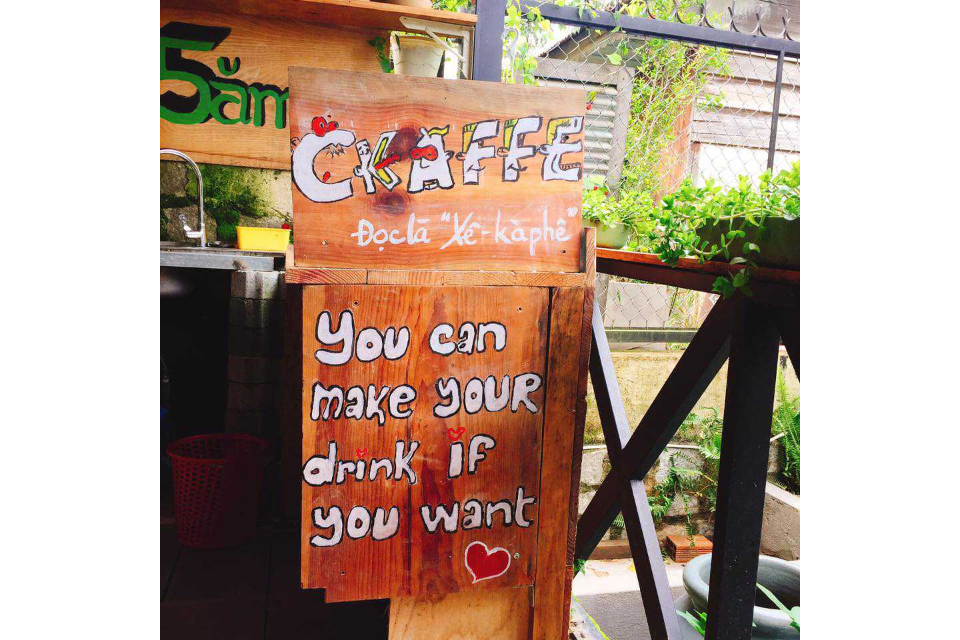 5ăm
CKAFFE
Đọc là "Xé-kàphê"
You can
make your
drink if
you want